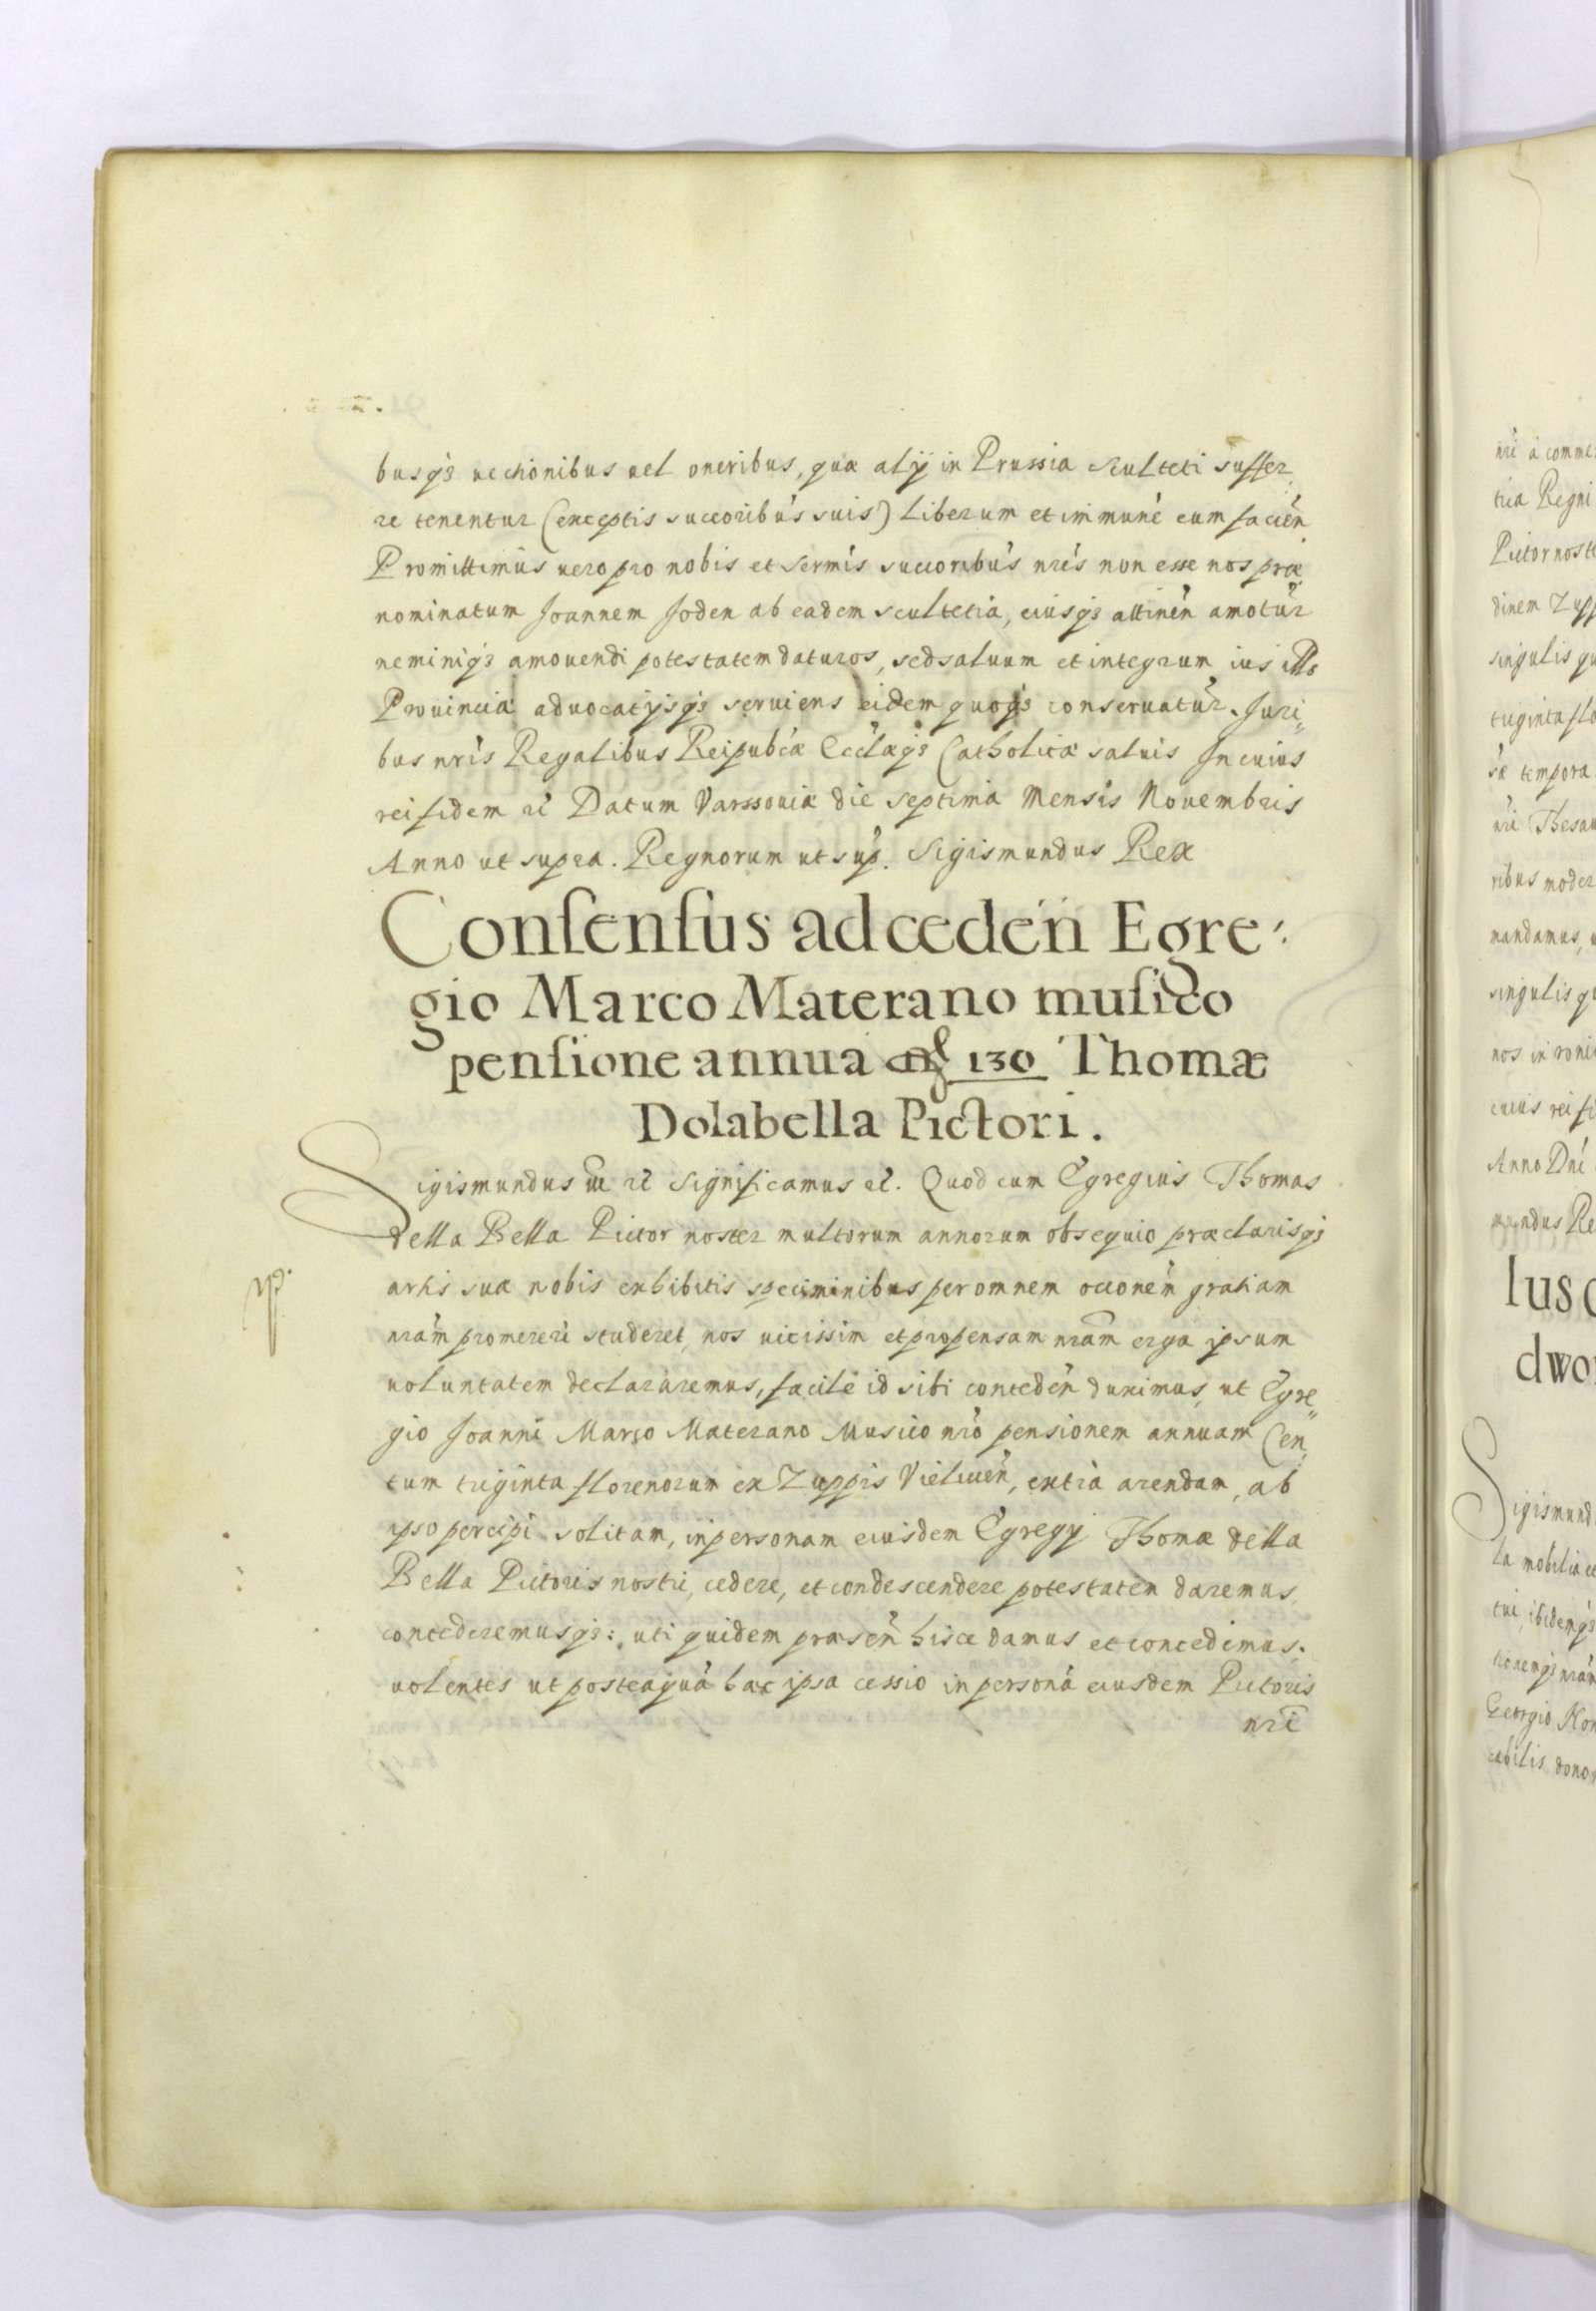 busq₃ vectionibus uel oneribus, quæ alÿ in Prussia Sculteti suffer,
re tenentur (exceptis succoribus suis) Liberum et immune eum facien.
Promittimus uero pro nobis et Sermis succoribus nris non esse nos præ,
nominatum Joannem Joden ab eadem scultetia, eiusq₃ attinen amotur
neminiq₃ amouendi potestatem daturos, sed saluum et integrum ius illi
Prouincia aduocatÿsq₃ seruiens eidem quoq₃ conseruatur. Juri„
bus nris Regalibus Reipubcæ Ecclæq₃ Catholicæ saluis In cuius
rei fidem et Datum Varssouiæ die septima Mensis Nouembris
Anno ut supra. Regnorum ut sup. Sigismundus Rex
Conſenſus ad ceden Egre:
gio Marco Materano muſico
penſione annua 130 Thomæ
Dolabella Pictori.
Sigismundus et Significamus et. Quod cum Egregius Thomas
della Bella Pictor noster multorum annorum obsequio præclarisq₃
artis suæ nobis exhibitis speciminibus per omnem occonem gratiam
nram promereri studeret, nos uicissim et propensam nram erga ipsum
uoluntatem declararemus, facile id sibi conceden duximus, ut Egre„
gio Joanni Marco Materano Musico nro pensionem annuam Cen„
tum triginta florenorum ex Zuppis Vielicen, extra arendam, ab
ipso percipi solitam, in personam eiusdem Egregÿ Thomæ della
Bella Pictoris nostri, cedere, et condescendere potestatem daremus
concederemusq₃: uti quidem præsen hisce damus et concedimus.
uolentes ut posteaquã hæc ipsa cessio in personã eiusdem Pictoris
nri
nri a
tria Regni
Pictor nos
dinem Zupp
singulis
triginta flo
tempora
nri Thesau
ribus moder
mandamus,
singulis
nos in
cuius rei
Anno Dni
mundus Re
dwo
Sigismund
la mobilia
tui, ibidemq₃
Georgio